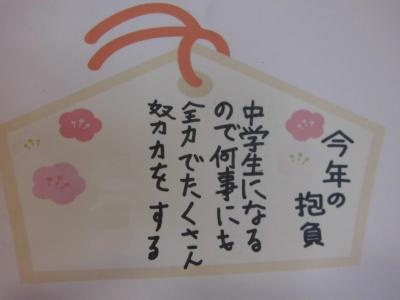 今年の抱負
中学生になる
ので何事にも
全力でたくさん
努力をする